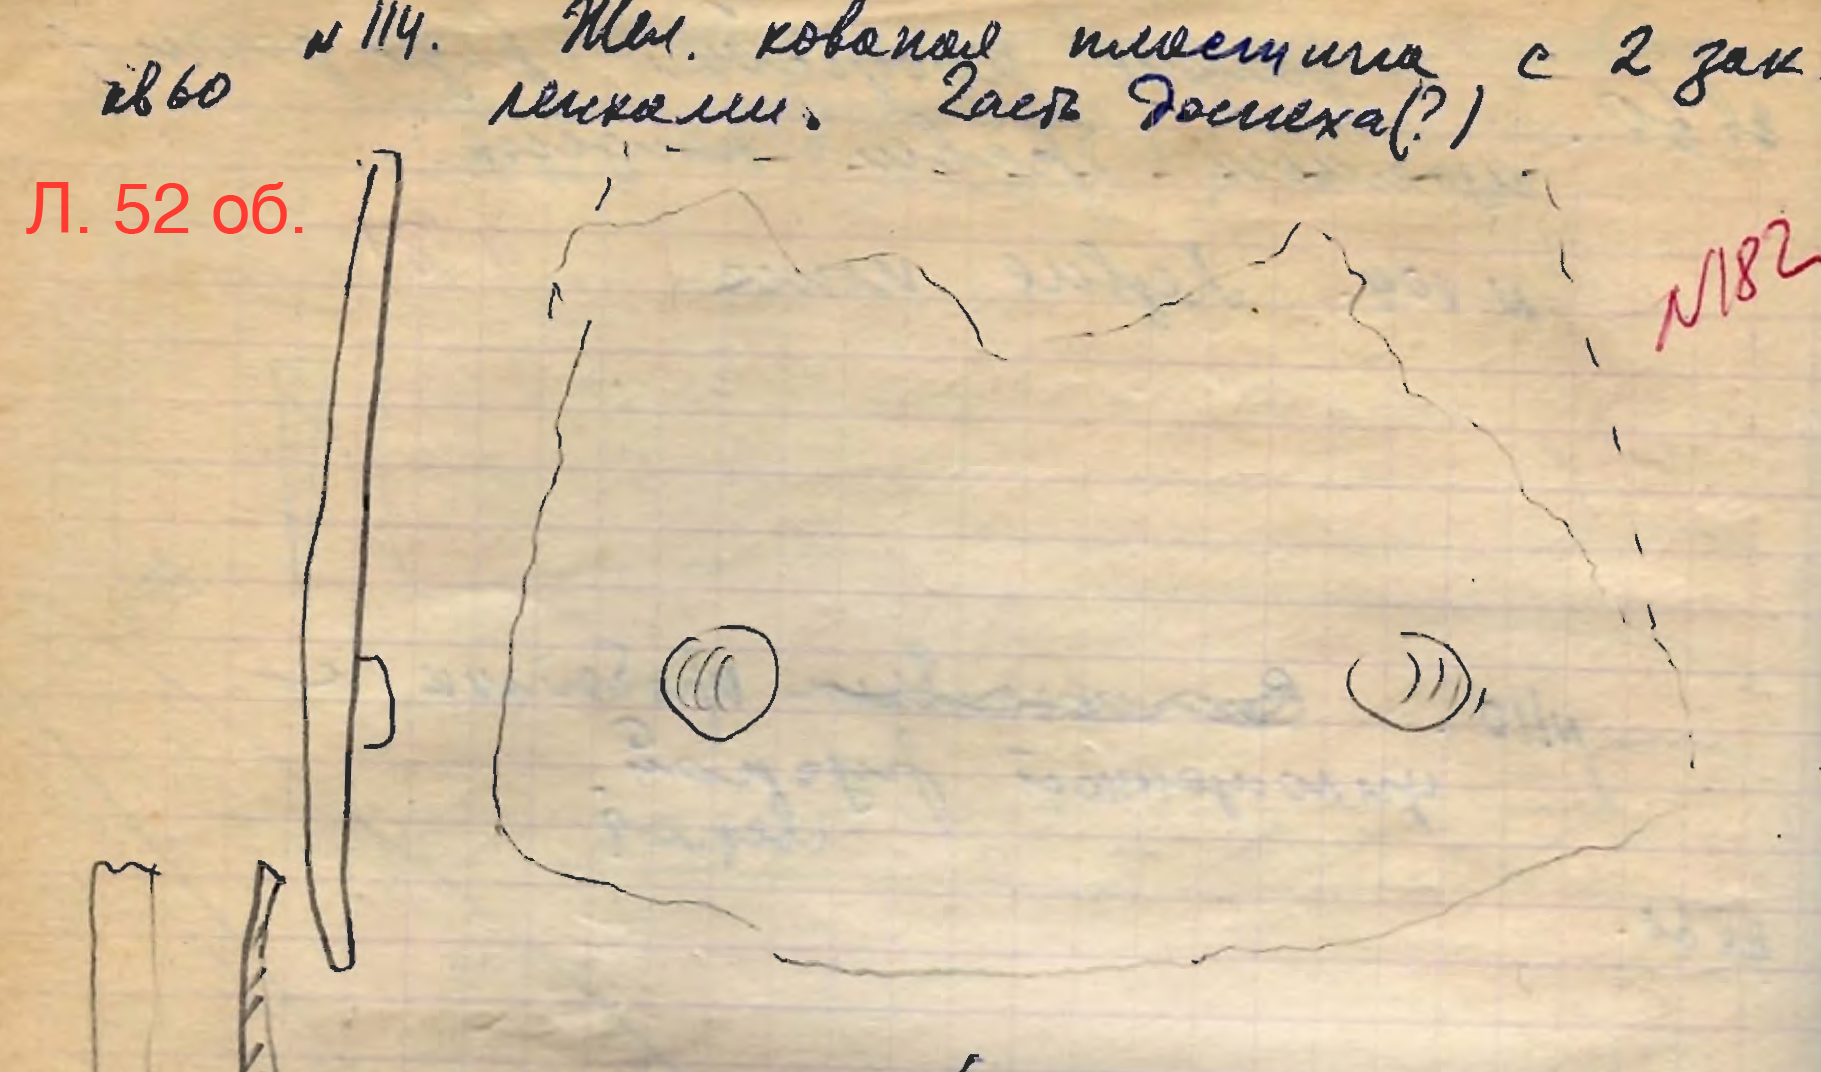 № 114. Жел. кованая пластина с 2 зак
кв 60 лепками. Часть доспеха (?)
Л. 52 об.
№182